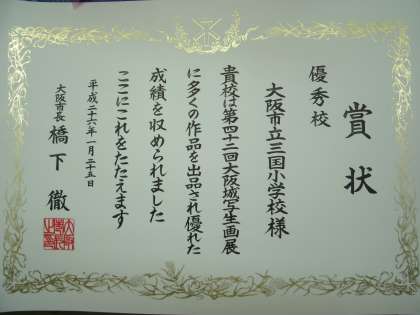 賞状
優秀校
大阪市立三国小学校様
貴校は第四十二回大阪城写生画展
に多くの作品を出品され優れた
成績を収められました
ここにこれをたたえます
平成二十六年一月二十五日
大阪市長 橋下徹